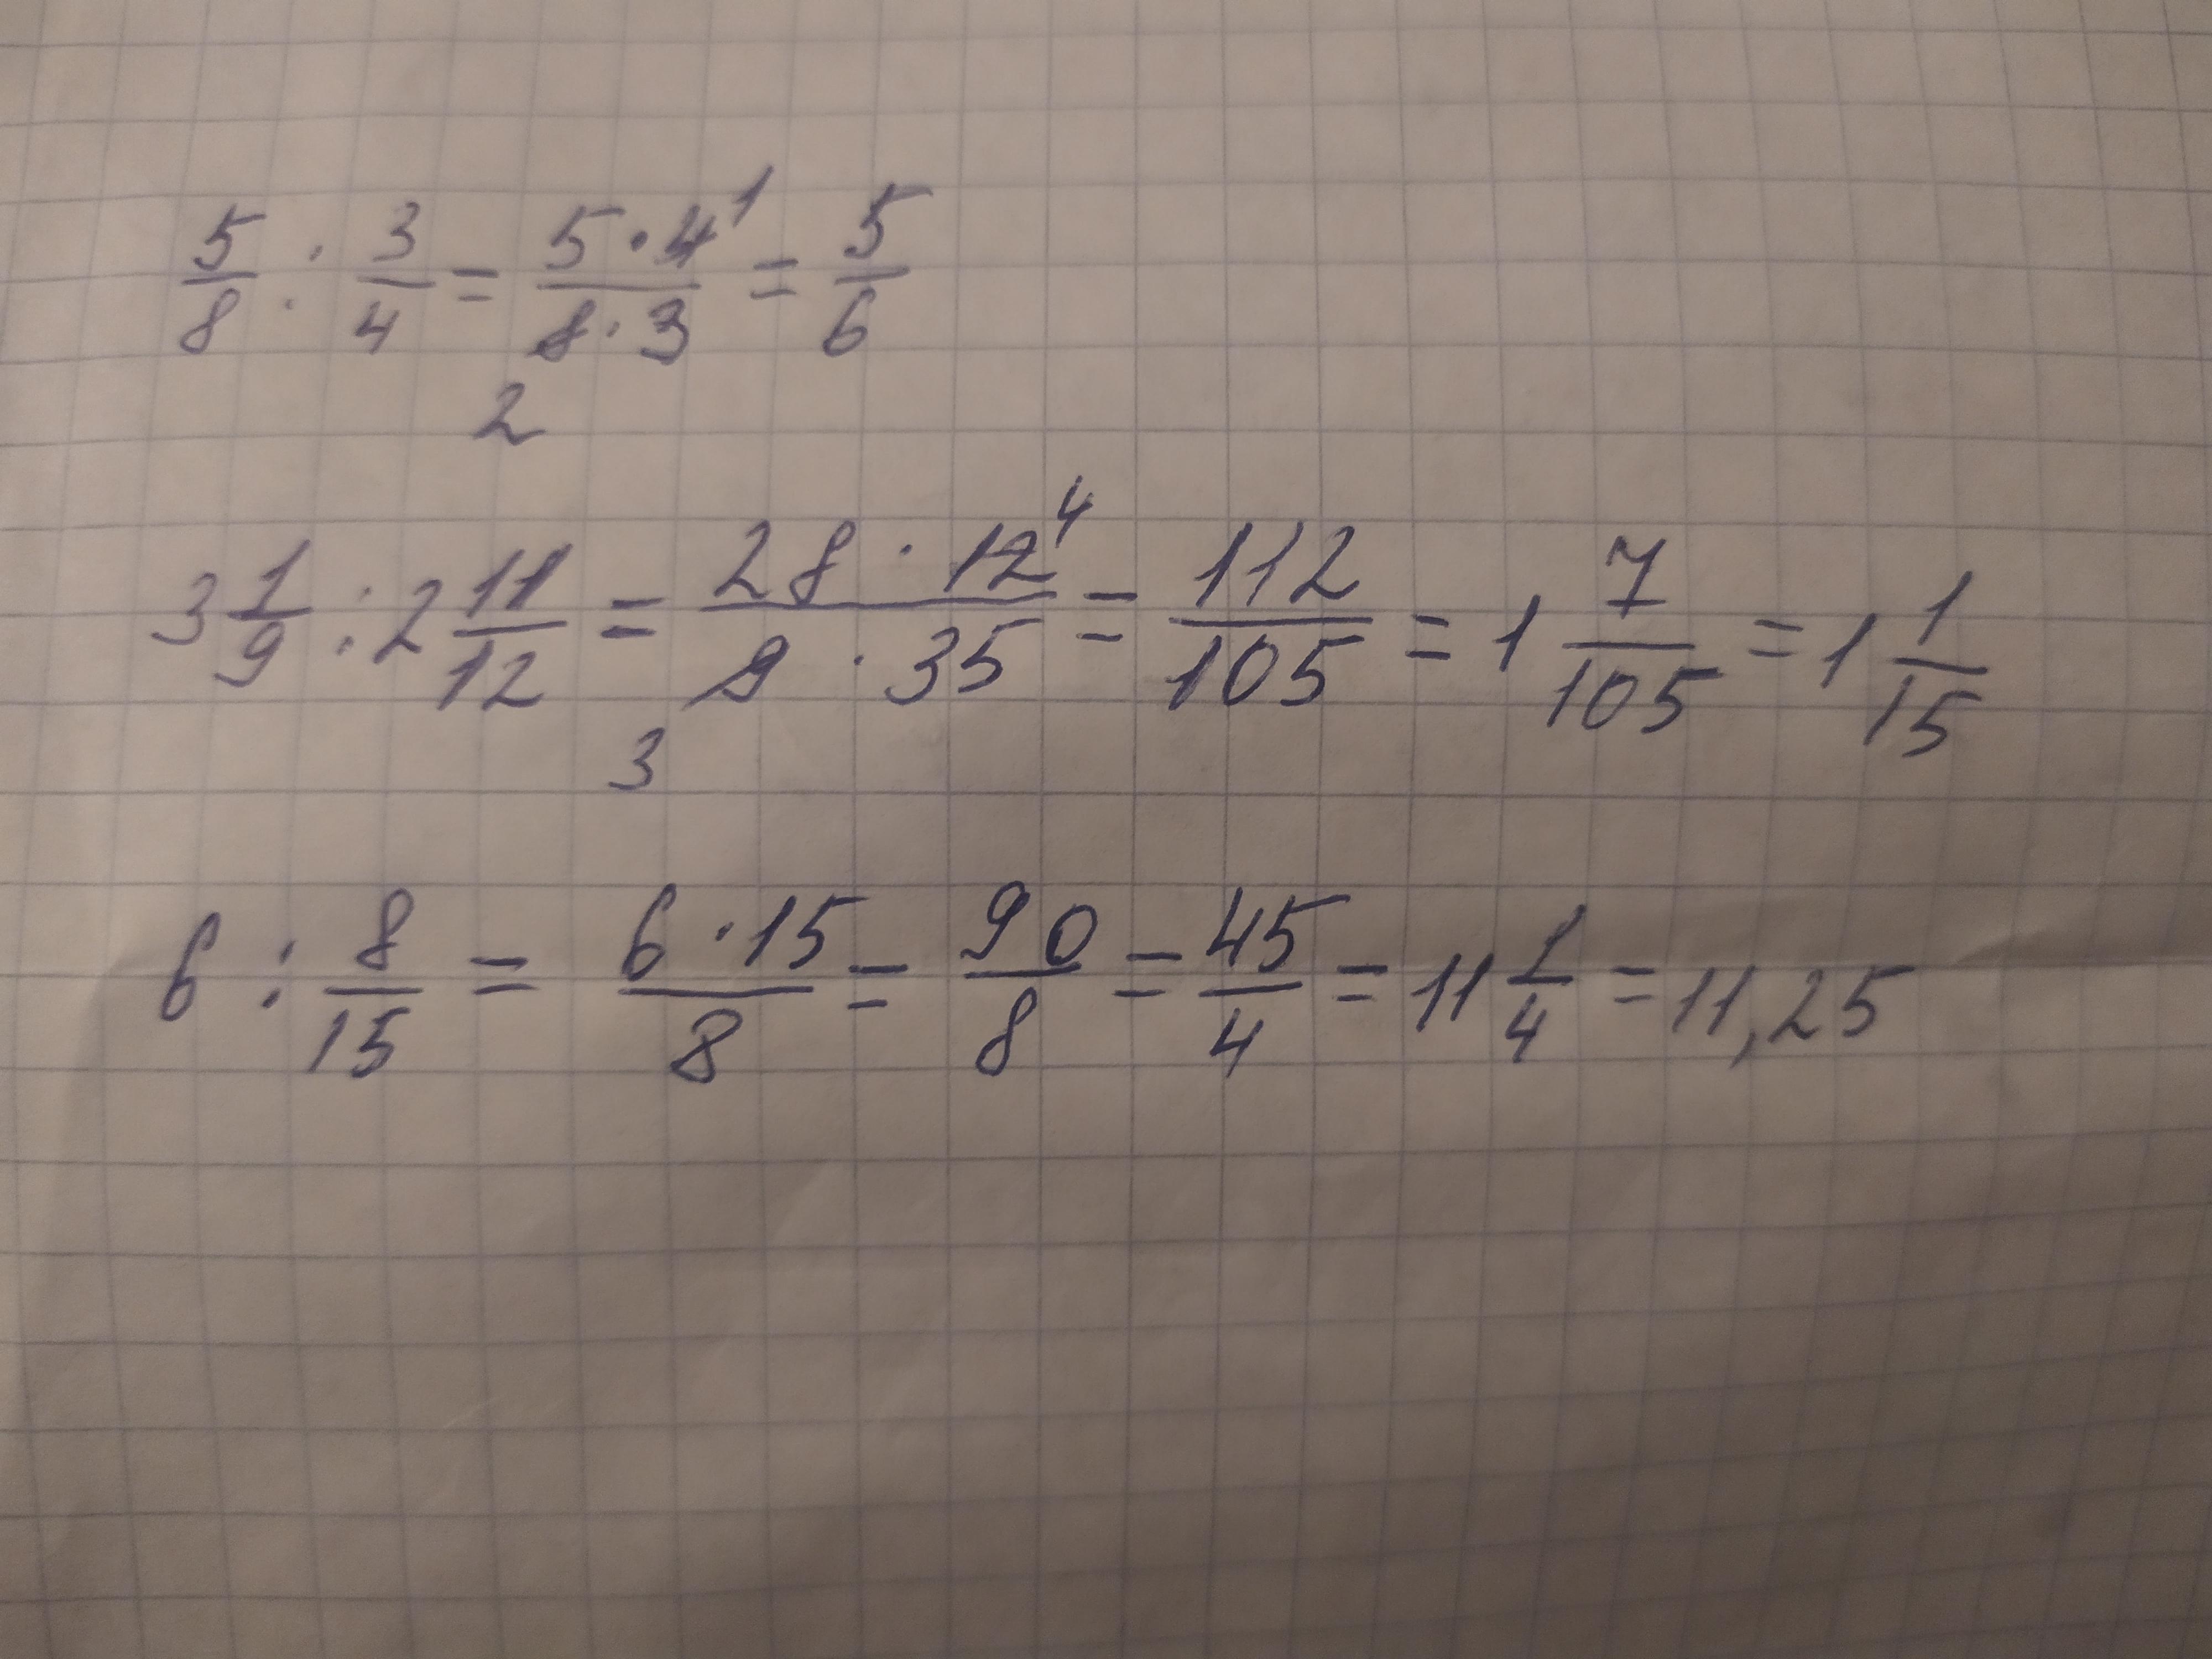 5/8 : 3/4 = 5·4¹/8·3 = 5/6
2
3 1/9 : 2 11/12 = 28·12⁴/9·35 = 112/105 = 1 7/105 = 1 1/15
3
6 : 8/15 = 6·15/8 = 90/8 = 45/4 = 11 1/4 = 11,25